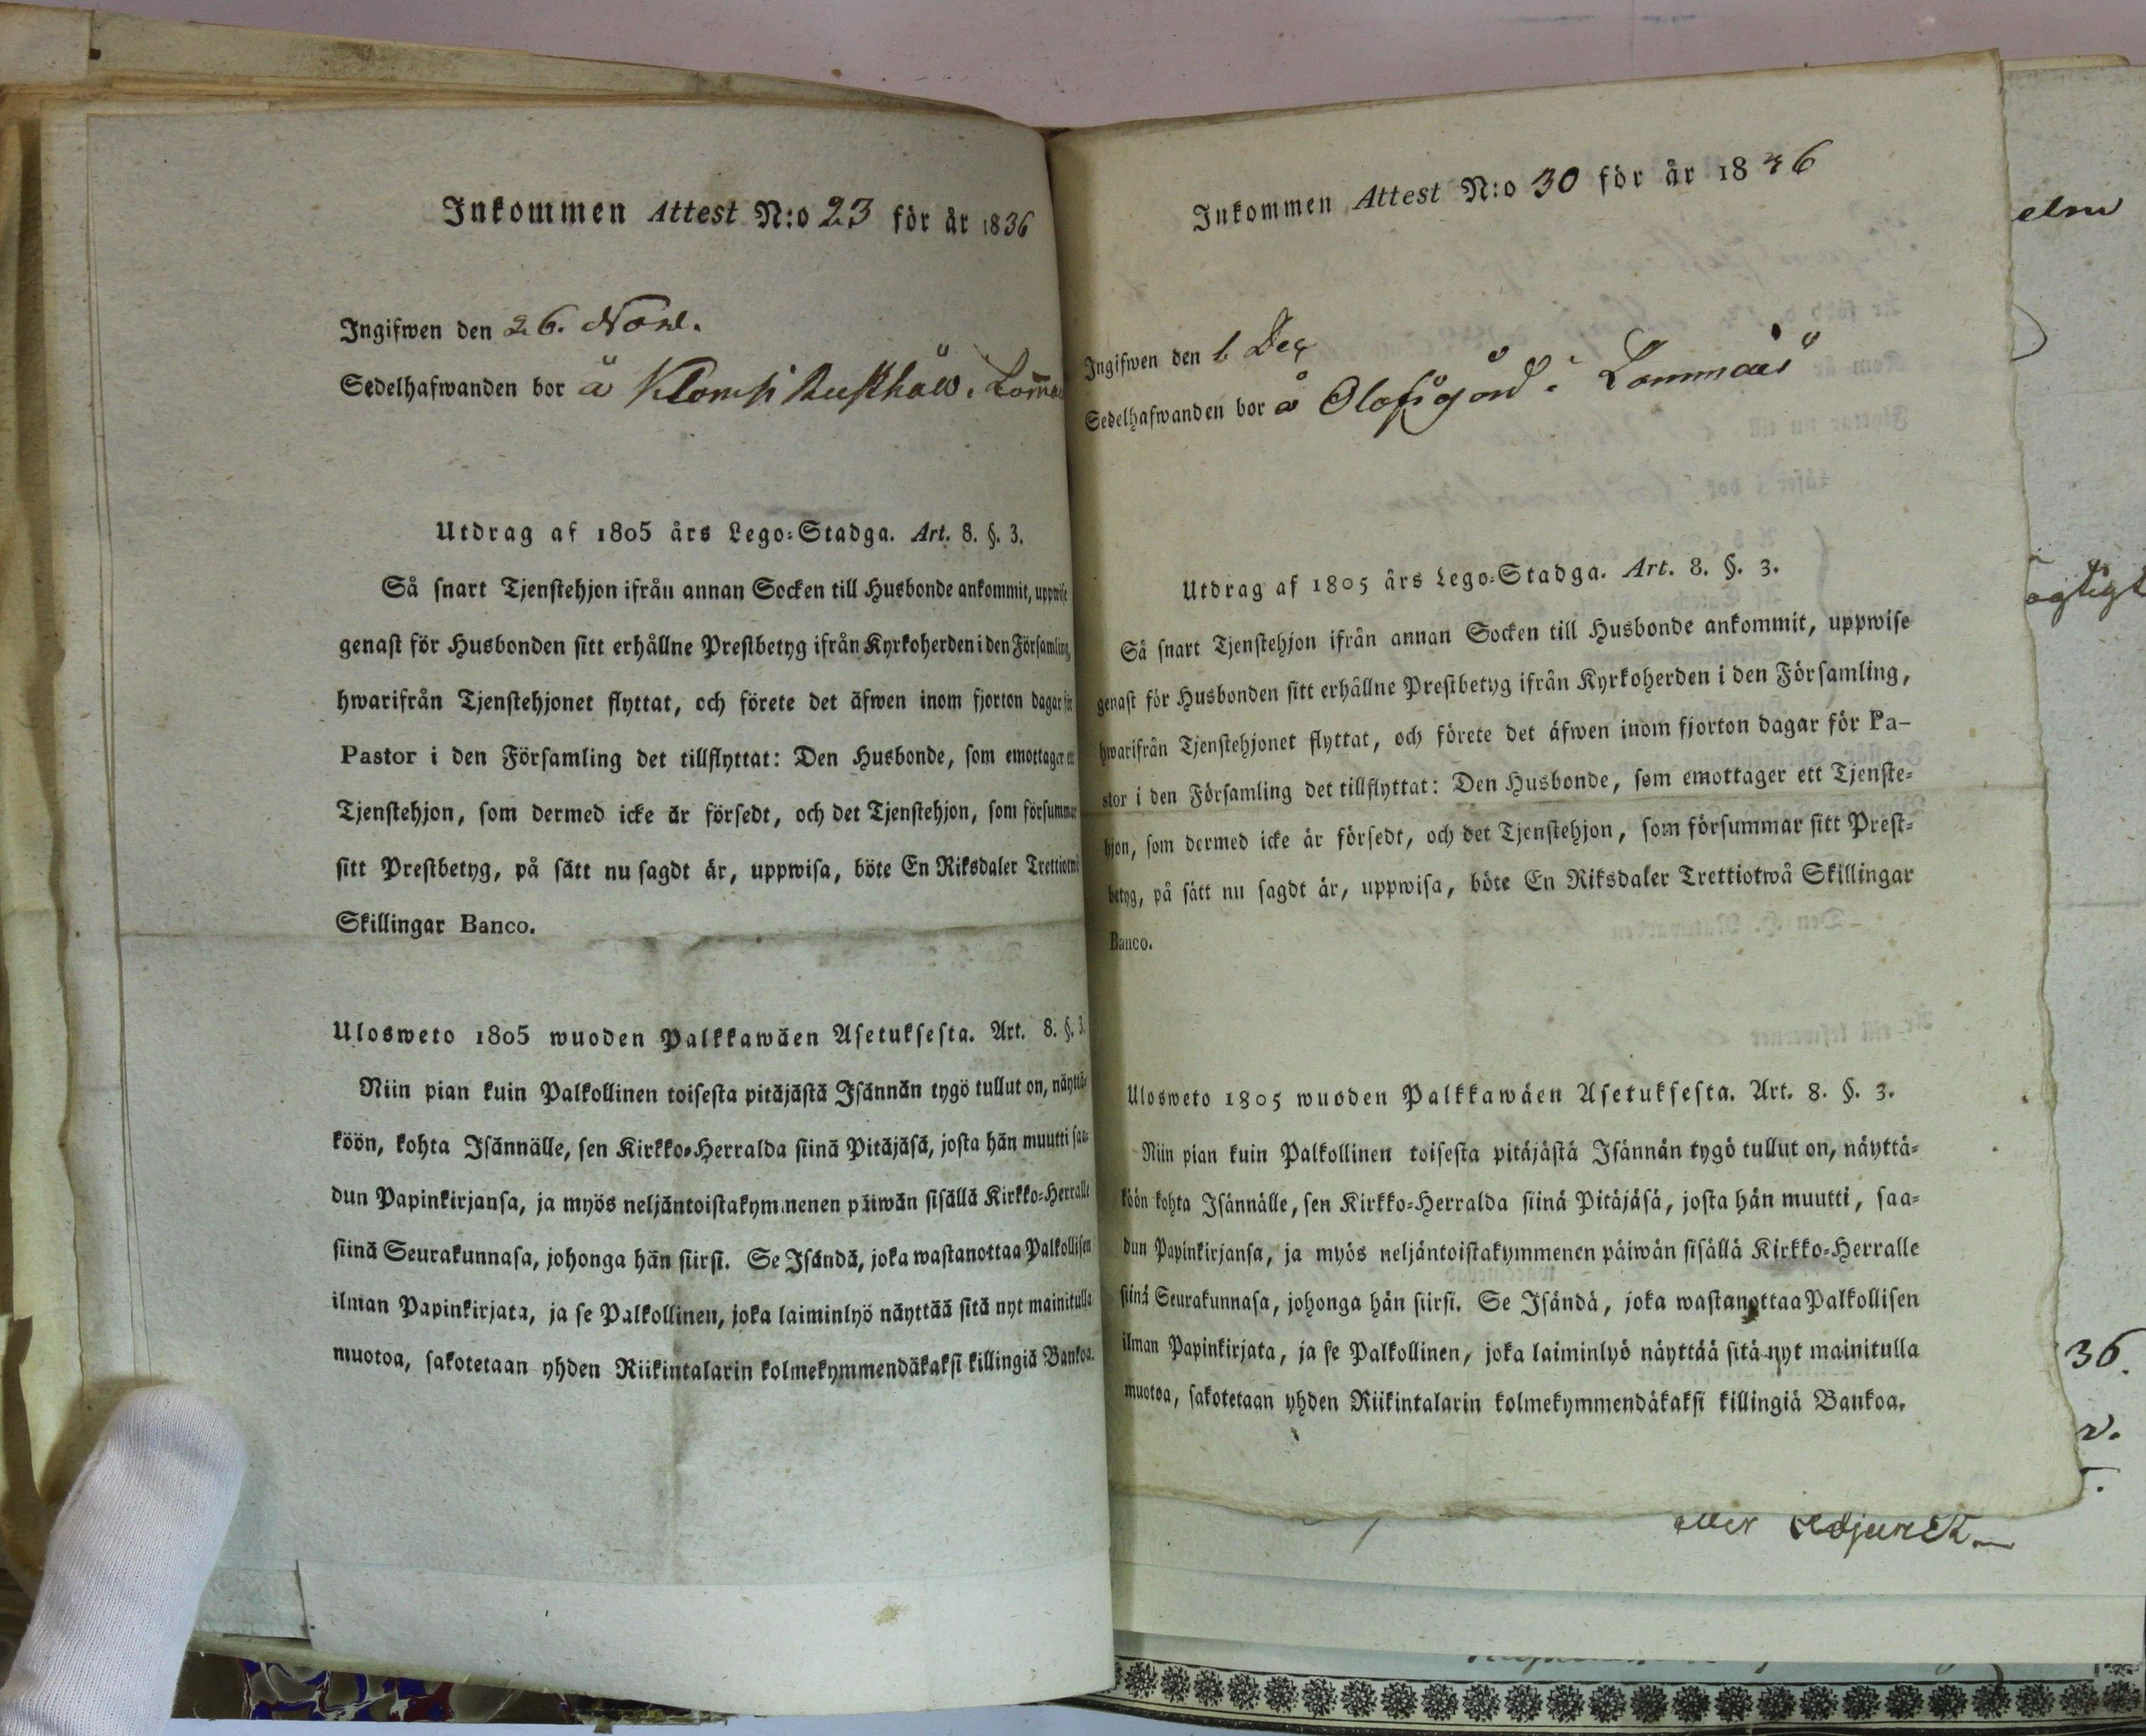 Inkommen Attest N:o 23 för år 1836
Ingifwen den 26. Nov.
Sedelhafwanden bor å Klemsi Rusthåll i
Utdrag af 1805 års Lego-Stadga. Art. 8. §. 3.
Så snart Tjenstehjon ifrån annan Socken till Husbonde ankommit, uppwise
genast för Husbonden sitt erhållne Prestbetyg ifrån Kyrkoherden i den Församling,
hwarifrån Tjenstehjonet flyttat, och förete det äfwen inom fjorton dagar för
Pastor i den Församling det tillflyttat: Den Husbonde, som emottager
Tjenstehjon, som dermed icke är försedt, och det Tjenstehjon, som försummar
sitt Prestbetyg, på sätt nu sagdt är, uppwisa, böte En Riksdaler Trettiotwå
Skillingar Banco.
Ulosweto 1805 wuoden Palkkawäen Asetuksesta. Art. 8. §. 3.
Niin pian kuin Palkollinen toisesta pitäjästä Isännän tygö tullut on, näyttä-
köön, kohta Isännälle, sen Kirkko-Herralda siinä Pitäjäsä, josta hän muutti saa-
dun Papinkirjansa, ja myös neljäntoistakymmenen päiwän sisällä Kirkko-Herralle
siinä Seurakunnasa, johonga hän siirsi. Se Isändä, joka wastanottaa Palkollisen
ilman Papinkirjata, ja se Palkollinen, joka laiminlyö näyttää sitä nyt mainitulla
muotoa, sakotetaan yhden Riikintalarin kolmekymmendäkaksi killingiä Bankoa.
Inkommen Attest N:o 30 för år 1836
Ingifwen den 1 Dec
Sedelhafwanden bor å Olofsgård i Lammais
Utdrag af 1805 års Lego-Stadga. Art. 8. §. 3.
Så snart Tjenstehjon ifrån annan Socken till Husbonde ankommit, uppwise
genast för Husbonden sitt erhållne Prestbetyg ifrån Kyrkoherden i den Församling,
hwarifrån Tjenstehjonet flyttat, och förete det äfwen inom fjorton dagar för Pa-
stor i den Församling det tillflyttat: Den Husbonde, som emottager ett Tjenste-
hjon, som dermed icke är försedt, och det Tjenstehjon, som försummar sitt Prest-
betyg, på sätt nu sagdt är, uppwisa, böte En Riksdaler Trettiotwå Skillingar
Banco.
Ulosweto 1805 wuoden Palkkawäen Asetuksesta. Art. 8. §. 3.
Niin pian kuin Palkollinen toisesta pitäjästä Isännän tygö tullut on, näyttä-
köön kohta Isännälle, sen Kirkko-Herralda siinä Pitäjäsä, josta hän muutti, saa-
dun Papinkirjansa, ja myös neljäntoistakymmenen päiwän sisällä Kirkko-Herralle
siinä Seurakunnasa, johonga hän siirsi. Se Isändä, joka wastanottaa Palkollisen
ilman Papinkirjata, ja se Palkollinen, joka laiminlyö näyttää sitä nyt mainitulla
muotoa, sakotetaan yhden Riikintalarin kolmekymmendäkaksi killingiä Bankoa.
36.
eller Adjunct.